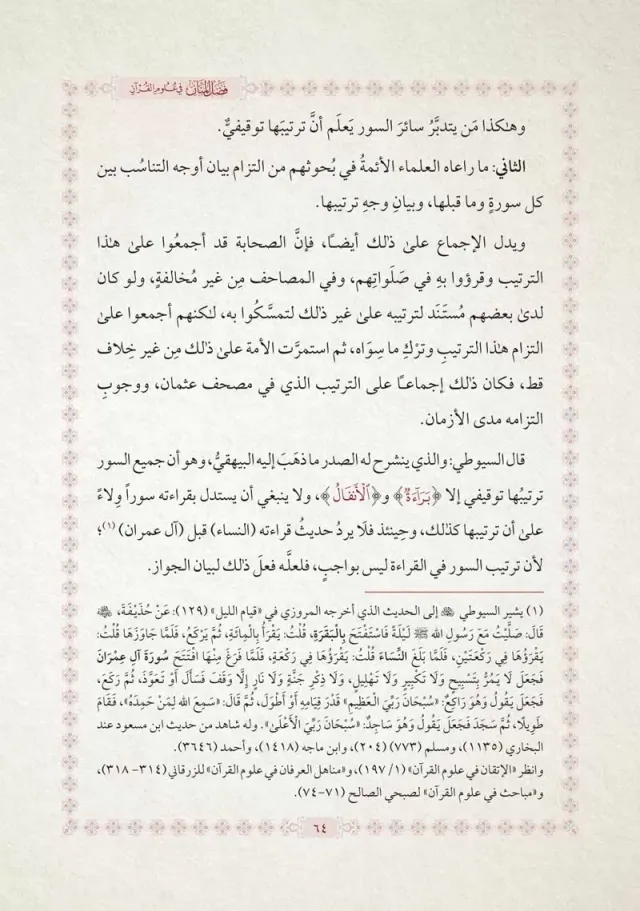 فضل المنان في علوم القرآن
وهٰكذا مَن يتدبَّرُ سائرَ السور يَعلَم أنَّ ترتيبَها توقيفيٌّ.
الثاني: ما راعاه العلماء الأئمةُ في بُحوثهم من التزام بيان أوجه التناسُب بين
كل سورةٍ وما قبلها، وبيانِ وجهِ ترتيبها.
ويدل الإجماع علىٰ ذٰلك أيضًا، فإنَّ الصحابة قد أجمعُوا علىٰ هٰذا
الترتيب وقرؤوا بهِ في صَلَواتِهم، وفي المصاحف مِن غير مُخالفةٍ، ولو كان
لدىٰ بعضهم مُستَنَد لترتيبه علىٰ غير ذٰلك لتمسَّكُوا به، لٰكنهم أجمعوا علىٰ
التزام هٰذا الترتيبِ وترْكِ ما سِوَاه، ثم استمرَّت الأمة علىٰ ذٰلك مِن غير خِلاف
قط، فكان ذٰلك إجماعًا على الترتيب الذي في مصحف عثمان، ووجوبِ
التزامه مدى الأزمان.
قال السيوطي: والذي ينشرح له الصدر ما ذهَبَ إليه البيهقيُّ، وهو أن جميع السور
ترتيبُها توقيفي إلا ﴿بَرَآءَةٌ﴾ و﴿ٱلْأَنفَالُ﴾، ولا ينبغي أن يستدل بقراءته سوراً وِلاءً
علىٰ أن ترتيبها كذٰلك، وحِينئذ فلَا يردُ حديثُ قراءته (النساء) قبل (آل عمران) (١)؛
لأن ترتيب السور في القراءة ليس بواجبٍ، فلعلَّه فعلَ ذٰلك لبيان الجواز.
(١) يشير السيوطي إلى الحديث الذي أخرجه المروزي في «قيام الليل» (١٢٩): عَنْ حُذَيْفَةَ،
قَالَ: صَلَّيْتُ مَعَ رَسُولِ الله ﷺ لَيْلَةً فَاسْتَفْتَحَ بِالْبَقَرَةِ، قُلْتُ: يَقْرَأُ بِالْمِائَةِ، ثُمَّ يَرْكَعُ، فَلَمَّا جَاوَزَهَا قُلْتُ:
يَقْرَؤُهَا فِي رَكْعَتَيْنِ، فَلَمَّا بَلَغَ النِّسَاءَ قُلْتُ: يَقْرَؤُهَا فِي رَكْعَةٍ، فَلَمَّا فَرَغَ مِنْهَا افْتَتَحَ سُورَةَ آلِ عِمْرَانَ
فَجَعَلَ لَا يَمُرُّ بِتَسْبِيحٍ وَلَا تَكْبِيرٍ وَلَا تَهْلِيلٍ، وَلَا ذِكْرِ جَنَّةٍ وَلَا نَارٍ إِلَّا وَقَفَ فَسَأَلَ أَوْ تَعَوَّذَ، ثُمَّ رَكَعَ،
فَجَعَلَ يَقُولُ وَهُوَ رَاكِعٌ: «سُبْحَانَ رَبِّيَ الْعَظِيمِ» قَدْرَ قِيَامِهِ أَوْ أَطْوَلَ، ثُمَّ قَالَ: «سَمِعَ اللهُ لِمَنْ حَمِدَهُ»، فَقَامَ
طَوِيلًا، ثُمَّ سَجَدَ فَجَعَلَ يَقُولُ وَهُوَ سَاجِدٌ: «سُبْحَانَ رَبِّيَ الْأَعْلَىٰ». وله شاهد من حديث ابن مسعود عند
البخاري (١١٣٥)، ومسلم (٧٧٣) (٢٠٤)، وابن ماجه (١٤١٨)، وأحمد (٣٦٤٦).
وانظر «الإتقان في علوم القرآن» (١/ ١٩٧)، و«مناهل العرفان في علوم القرآن» للزرقاني (٣١٤- ٣١٨)،
و«مباحث في علوم القرآن» لصبحي الصالح (٧١-٧٤).
٦٤